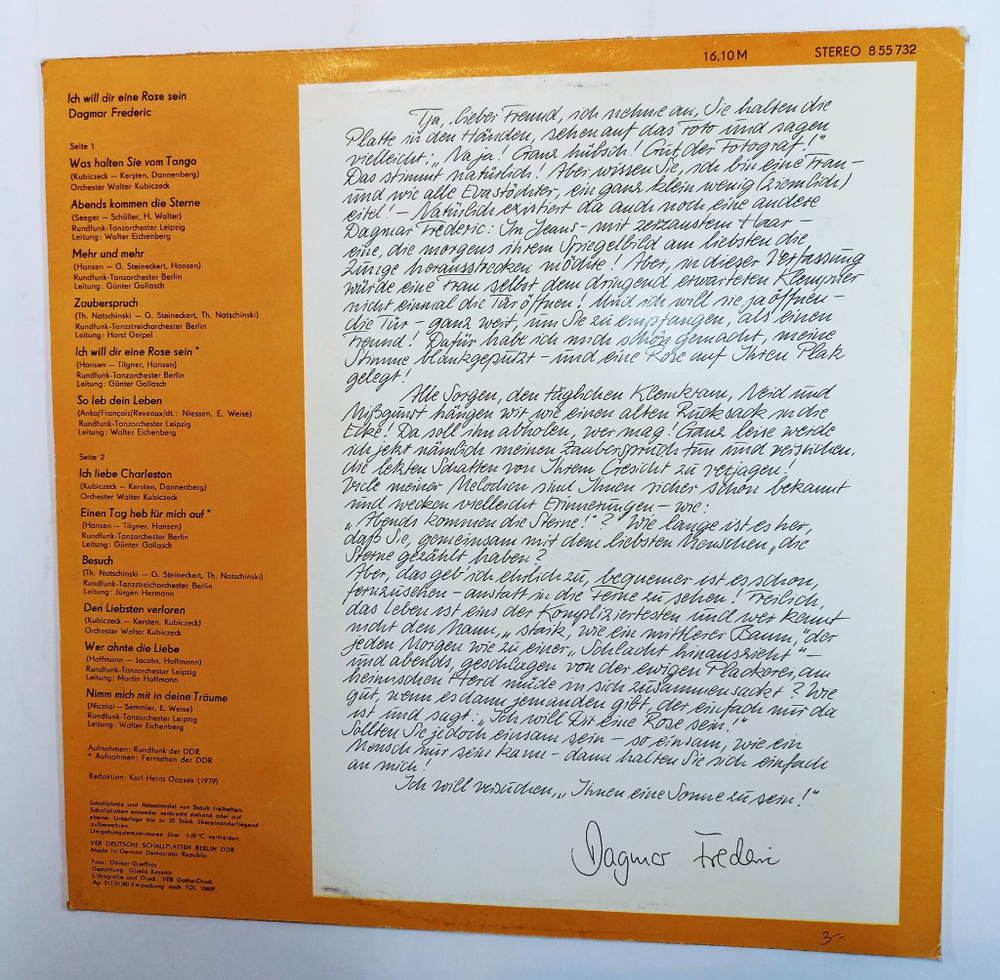 16,10 M
STEREO 8 55 732
Ich will dir eine Rose sein
Dagmar Frederic
Seite 1
Was halten Sie vom Tango
(Kubiczeck – Kersten, Dannenberg)
Orchester Walter Kubiczeck
Abends kommen die Sterne
(Seeger – Schüller, H. Walter)
Rundfunk-Tanzorchester Leipzig
Leitung: Walter Eichenberg
Mehr und mehr
(Hansen – G. Steineckert, Hansen)
Rundfunk-Tanzorchester Berlin
Leitung: Günter Gollasch
Zauberspruch
(Th. Natschinski – G. Steineckert, Th. Natschinski)
Rundfunk-Tanzstreichorchester Berlin
Leitung: Horst Geipel
Ich will dir eine Rose sein *
(Hansen – Tilgner, Hansen)
Rundfunk-Tanzorchester Berlin
Leitung: Günter Gollasch
So leb dein Leben
(Anka/François/Reveaux/dt.: Niessen, E. Weise)
Rundfunk-Tanzorchester Leipzig
Leitung: Walter Eichenberg
Seite 2
Ich liebe Charleston
(Kubiczeck – Kersten, Dannenberg)
Orchester Walter Kubiczeck
Einen Tag heb für mich auf *
(Hansen – Tilgner, Hansen)
Rundfunk-Tanzorchester Berlin
Leitung: Günter Gollasch
Besuch
(Th. Natschinski – G. Steineckert, Th. Natschinski)
Rundfunk-Tanzstreichorchester Berlin
Leitung: Jürgen Hermann
Den Liebsten verloren
(Kubiczeck – Kersten, Kubiczeck)
Orchester Walter Kubiczeck
Wer ahnte die Liebe
(Hoffmann – Jacobs, Hoffmann)
Rundfunk-Tanzorchester Leipzig
Leitung: Martin Hoffmann
Nimm mich mit in deine Träume
(Nicolai – Semmler, E. Weise)
Rundfunk-Tanzorchester Leipzig
Leitung: Walter Eichenberg
Aufnahmen: Rundfunk der DDR
* Aufnahmen: Fernsehen der DDR
Redaktion: Karl Heinz Ocasek (1979)
Schallplatte und Abtastnadel von Staub freihalten.
Schallplatten entweder senkrecht stehend oder auf
ebener Unterlage bis zu 20 Stück übereinanderliegend
aufbewahren.
Umgebungstemperaturen über +35 °C vermeiden.
VEB DEUTSCHE SCHALLPLATTEN BERLIN DDR
Made in German Democratic Republic
Foto: Günter Gueffroy
Gestaltung: Gisela Kosantz
Lithografie und Druck: VEB Gotha-Druck
Ag 511/01/80 Verpackung nach TGL 10609
Tja, lieber Freund, ich nehme an, Sie halten die
Platte in den Händen, sehen auf das Foto und sagen
vielleicht: „Na ja! Ganz hübsch! Gut der Fotograf!"
Das stimmt natürlich! Aber wissen Sie, ich bin eine Frau –
und wie alle Evastöchter, ein ganz klein wenig (ziemlich)
eitel! – Natürlich existiert da auch noch eine andere
Dagmar Frederic: In Jeans – mit zerzaustem Haar –
eine, die morgens ihrem Spiegelbild am liebsten die
Zunge herausstrecken möchte! Aber, in dieser Verfassung
würde eine Frau selbst dem dringend erwarteten Klempner
nicht einmal die Tür öffnen! Und ich will sie ja öffnen –
die Tür – ganz weit, um Sie zu empfangen, als einen
Freund! Dafür habe ich mich schön gemacht, meine
Stimme blankgeputzt – und eine Rose auf Ihren Platz
gelegt!
Alle Sorgen, den täglichen Kleinkram, Neid und
Mißgunst hängen wir wie einen alten Rucksack in die
Ecke! Da soll ihn abholen, wer mag! Ganz leise werde
ich jetzt nämlich meinen Zauberspruch tun und versuchen,
die letzten Schatten von Ihrem Gesicht zu verjagen!
Viele meiner Melodien sind Ihnen sicher schon bekannt
und wecken vielleicht Erinnerungen – wie:
„Abends kommen die Sterne!"? Wie lange ist es her,
daß Sie, gemeinsam mit dem liebsten Menschen, „die
Sterne gezählt haben?
Aber, das geb' ich ehrlich zu, bequemer ist es schon,
fernzusehen – anstatt in die Ferne zu sehen! Freilich,
das Leben ist eins der Kompliziertesten und wer kennt
nicht den Mann, „stark, wie ein mittlerer Baum," der
jeden Morgen wie zu einer „Schlacht hinauszieht" –
und abends, geschlagen von der ewigen Plackerei, am
heimischen Herd müde in sich zusammensackt? Wie
gut, wenn es dann jemanden gibt, der einfach nur da
ist und sagt: „Ich will Dir eine Rose sein!"
Sollten Sie jedoch einsam sein – so einsam, wie ein
Mensch nur sein kann – dann halten Sie sich einfach
an mich!
Ich will versuchen, „Ihnen eine Sonne zu sein!"
Dagmar Frederic
3,-